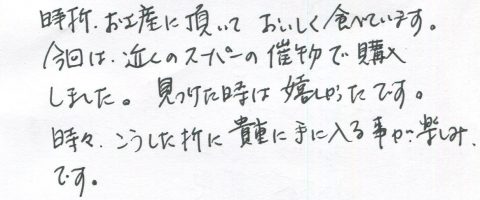 時折、お土産に頂いて おいしく食べています。
今回は、近くのスーパーの催物で購入
しました。見つけた時は嬉しかったです。
時々、こうした折に貴重に手に入る事が楽しみ
です。